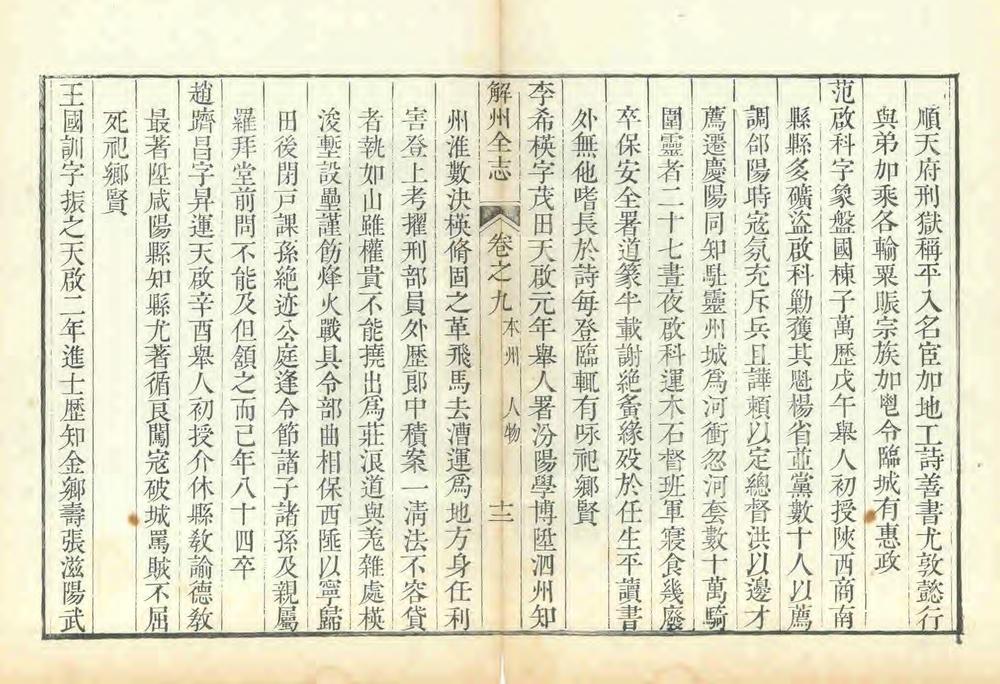 順天府刑獄稱平入名宦加地工詩善書尤敦懿行
與弟加乘各輸粟賑宗族加鬯令臨城有惠政
范啟科字象盤國棟子萬歷戊午舉人初授陜西商南
縣縣多礦盜啟科勦獲其魁楊省並黨數十人以薦
調郃陽時寇氛充斥兵且譁賴以定總督洪以邊才
薦遷慶陽同知駐靈州城爲河衝忽河套數十萬騎
圍靈者二十七晝夜啟科運木石督班軍寢食幾廢
卒保安全署道篆半載謝絕夤緣歿於任生平讀書
外無他嗜長於詩每登臨輒有咏祀鄉賢
李希楧字茂田天啟元年舉人署汾陽學博陞泗州知
解州全志 卷之九 本州 人物 十二
州淮數決楧脩固之革飛馬去漕運爲地方身任利
害登上考擢刑部員外歷郎中積案一淸法不容貸
者執如山雖權貴不能撓出爲莊浪道與羗雜處楧
浚塹設壘謹飭烽火戰具令部曲相保西陲以寧歸
田後閉戸課孫絶迹公庭逢令節諸子諸孫及親屬
羅拜堂前問不能及但頷之而已年八十四卒
趙躋昌字昇運天啟辛酉舉人初授介休縣敎諭德敎
最著陞咸陽縣知縣尤著循良闖寇破城罵賊不屈
死祀鄉賢
王國訓字振之天啟二年進士歷知金鄉壽張滋陽武